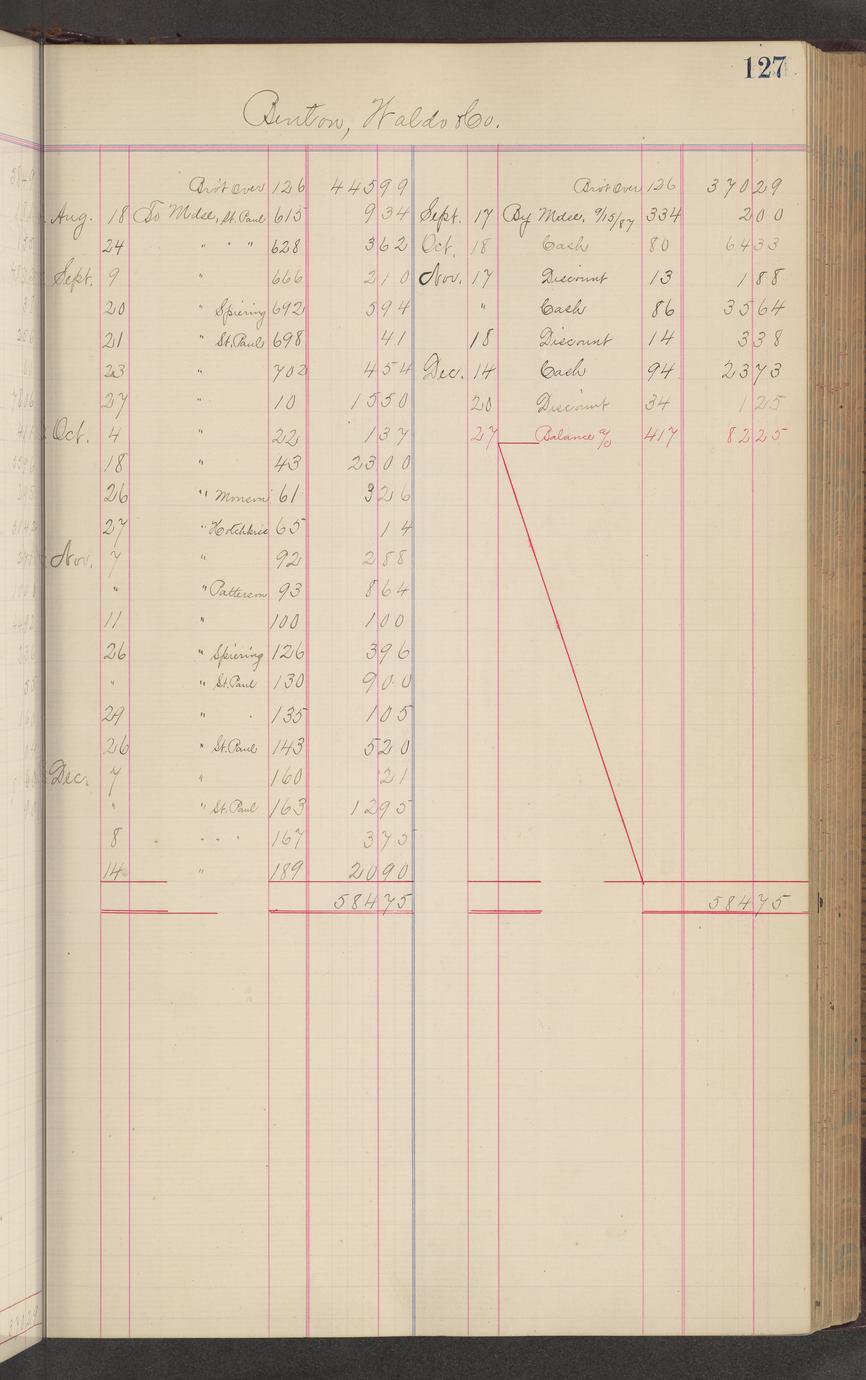 127
Benton, Waldo & Co.
Bro't Over 126 445 99
Aug. 18 To Mdse, St. Paul 615 9 34
24 " " " 628 3 62
Sept. 9 " 666 2 10
20 " Spiering 692 5 94
21 " St. Paul 698 41
23 " 702 4 54
27 " 10 15 50
Oct. 4 " 22 1 37
18 " 43 23 00
26 " Monson 61 3 26
27 " Hotchkiss 65 14
Nov. 7 " 92 2 58
" " Patterson 93 8 64
11 " 100 1 00
26 " Spiering 126 3 96
" " St. Paul 130 9 00
29 " " 135 1 05
26 " St. Paul 143 5 20
Dec. 7 " 160 21
" " St. Paul 163 12 95
8 " " " 167 3 75
14 " 189 20 90
584 75
Bro't Over 126 370 29
Sept. 17 By Mdse, 9/15/87 334 2 00
Oct. 18 Cash 80 64 33
Nov. 17 Discount 13 1 88
" Cash 86 35 64
18 Discount 14 3 38
Dec. 14 Cash 94 23 73
20 Discount 34 1 25
27 Balance a/c 417 82 25
584 75